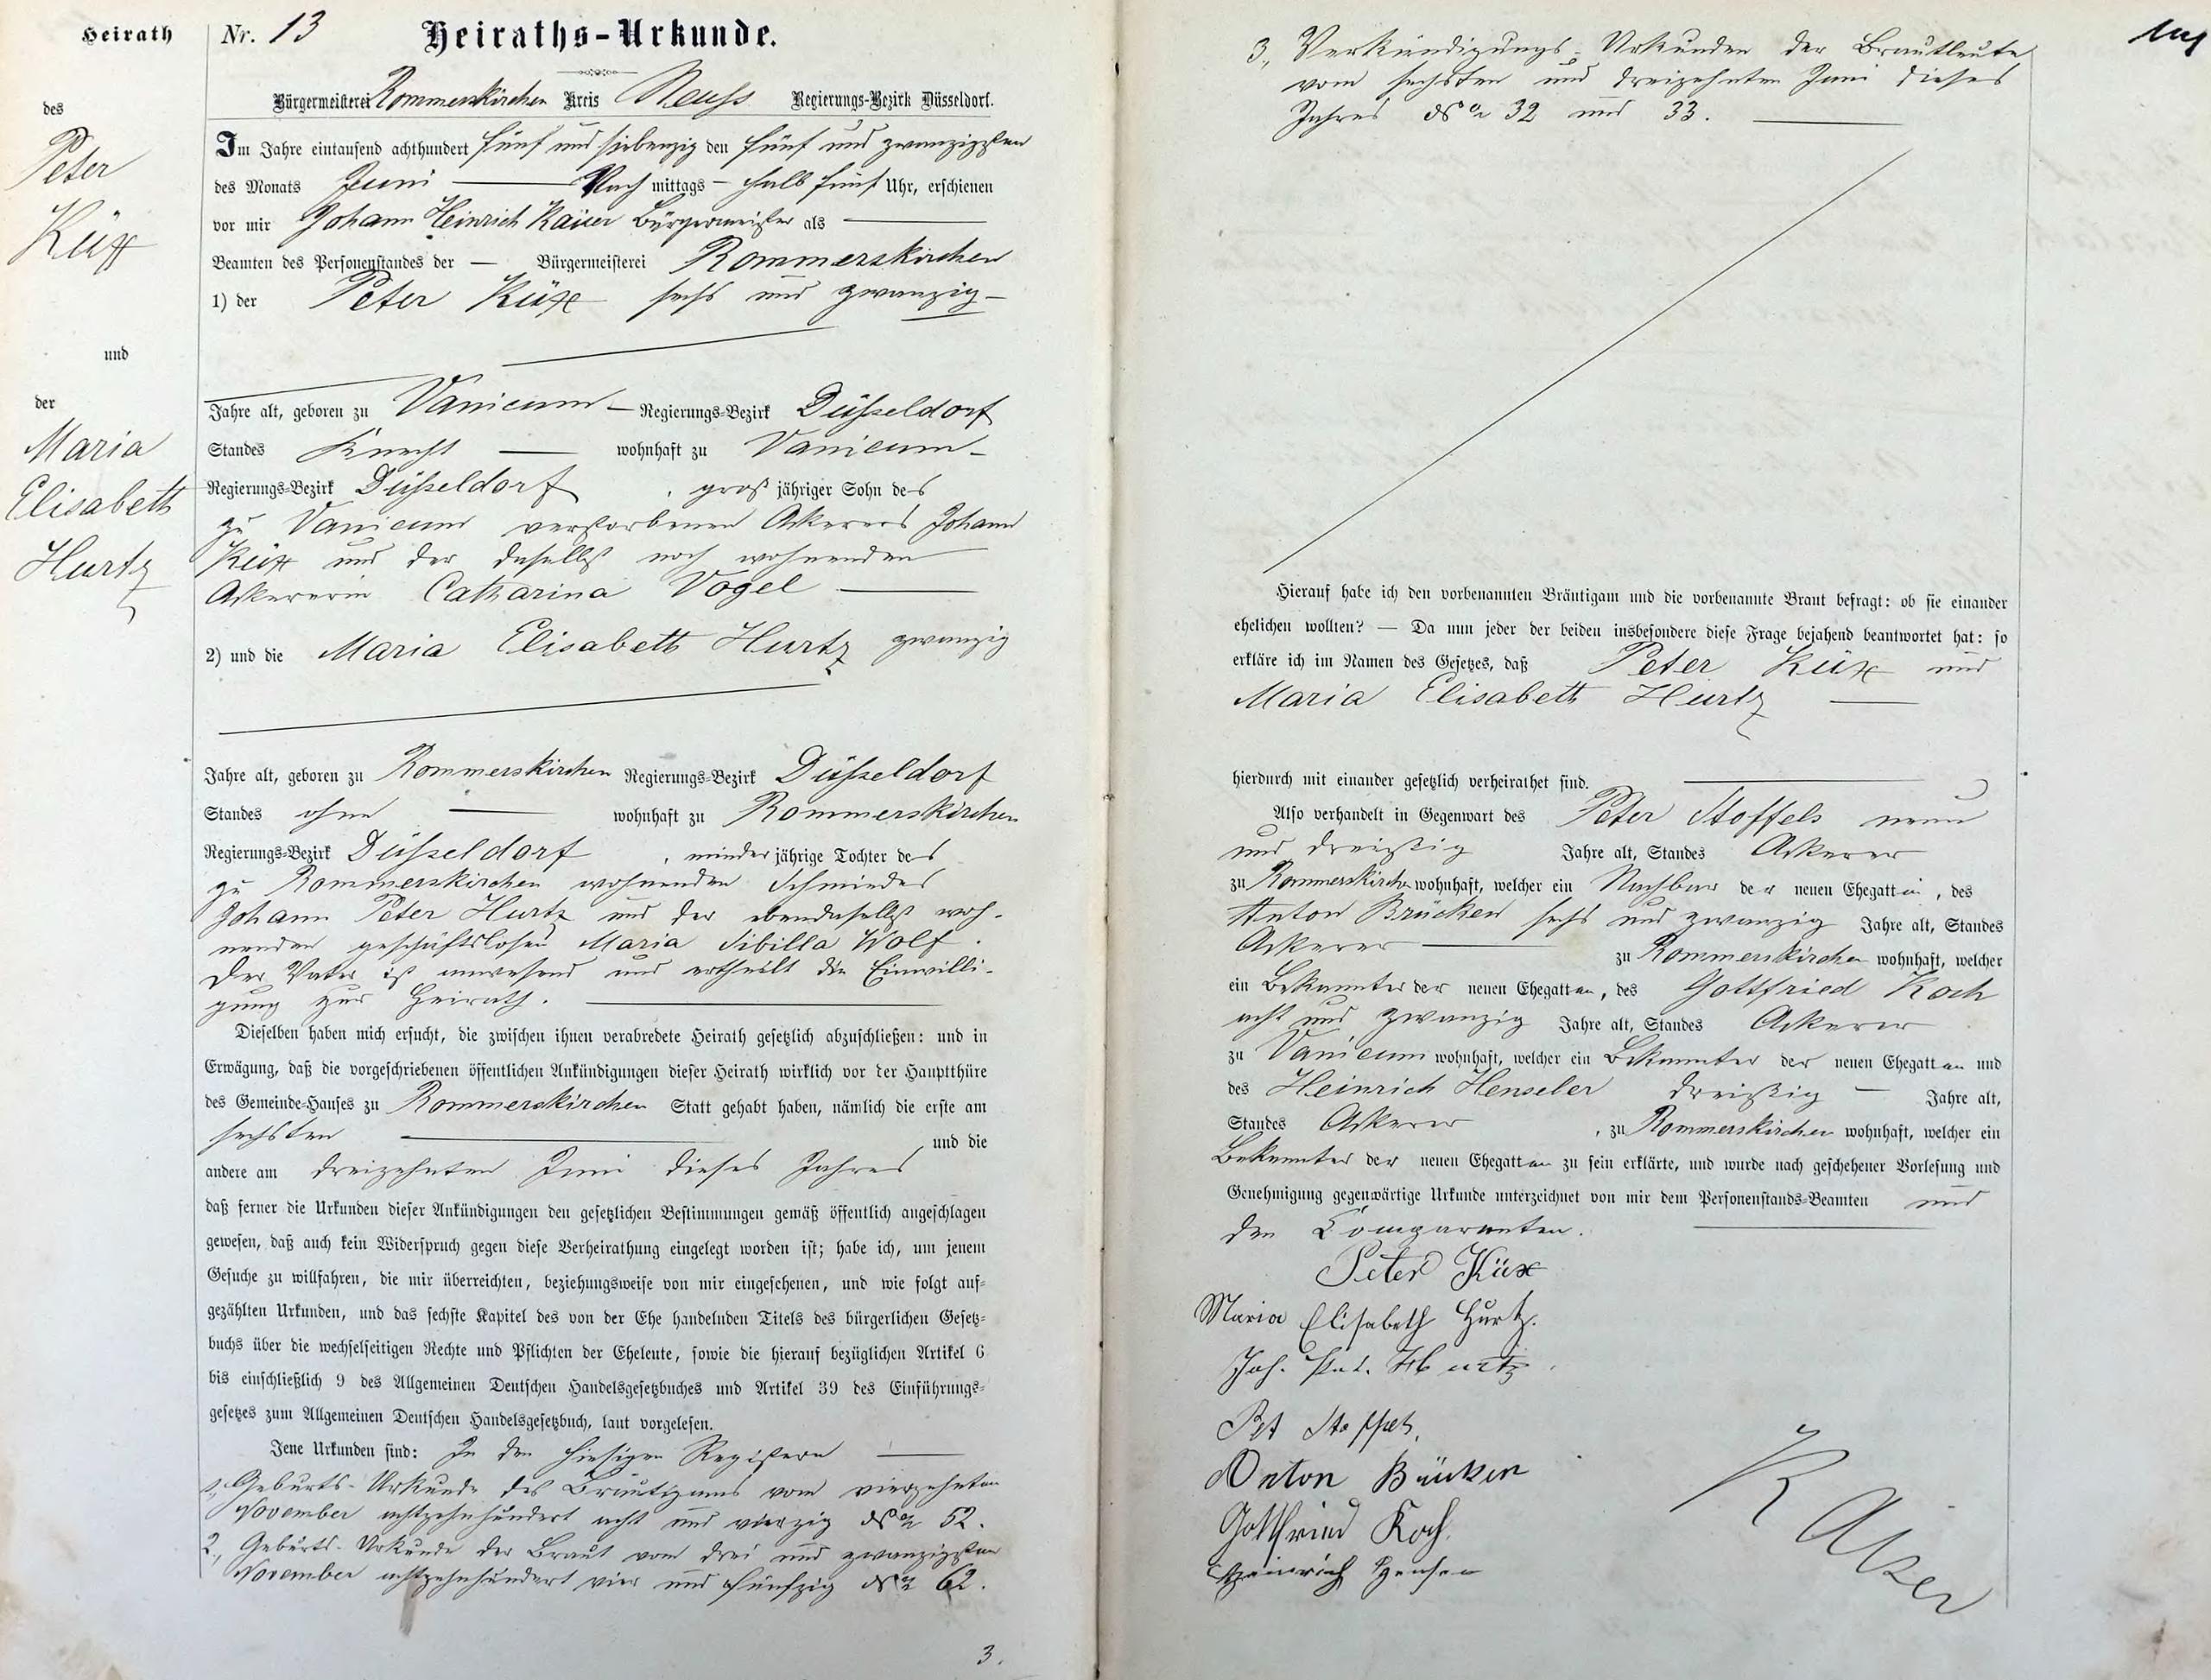 Heirath
des
Peter
Küx
und
der
Maria
Elisabeth
Hurtz
Nr. 13 Heiraths-Urkunde.
Bürgermeisterei Rommerskirchen Kreis Neuss Regierungs-Bezirk Düsseldorf.
Im Jahre eintausend achthundert fünf und siebenzig den fünf und zwanzigsten
des Monats Juni Nach mittags halb fünf Uhr, erschienen
vor mir Johann Heinrich Kaiser Bürgermeister als
Beamten des Personenstandes der Bürgermeisterei Rommerskirchen
1) der Peter Küx sechs und zwanzig
Jahre alt, geboren zu Vanicum Regierungs-Bezirk Düsseldorf
Standes Knecht wohnhaft zu Vanicum
Regierungs-Bezirk Düsseldorf, groß jähriger Sohn des
zu Vanicum verstorbenen Ackerers Johann
Küx und der daselbst noch wohnenden
Ackererin Catharina Vogel
2) und die Maria Elisabeth Hurtz zwanzig
Jahre alt, geboren zu Rommerskirchen Regierungs-Bezirk Düsseldorf
Standes ohne wohnhaft zu Rommerskirchen
Regierungs-Bezirk Düsseldorf, minder jährige Tochter des
zu Rommerskirchen wohnenden Schmiedes
Johann Peter Hurtz und der ebendaselbst woh-
nenden geschäftslosen Maria Sibilla Wolf.
Der Vater ist anwesend und ertheilt die Einwilli-
gung zur Heirath.
Dieselben haben mich ersucht, die zwischen ihnen verabredete Heirath gesetzlich abzuschließen: und in
Erwägung, daß die vorgeschriebenen öffentlichen Ankündigungen dieser Heirath wirklich vor der Hauptthüre
des Gemeinde-Hauses zu Rommerskirchen Statt gehabt haben, nämlich die erste am
sechsten und die
andere am dreizehnten Juni dieses Jahres
daß ferner die Urkunden dieser Ankündigungen den gesetzlichen Bestimmungen gemäß öffentlich angeschlagen
gewesen, daß auch kein Widerspruch gegen diese Verheirathung eingelegt worden ist; habe ich, um jenem
Gesuche zu willfahren, die mir überreichten, beziehungsweise von mir eingesehenen, und wie folgt auf-
gezählten Urkunden, und das sechste Kapitel des von der Ehe handelnden Titels des bürgerlichen Gesetz-
buchs über die wechselseitigen Rechte und Pflichten der Eheleute, sowie die hierauf bezüglichen Artikel 6
bis einschließlich 9 des Allgemeinen Deutschen Handelsgesetzbuches und Artikel 39 des Einführungs-
gesetzes zum Allgemeinen Deutschen Handelsgesetzbuch, laut vorgelesen.
Jene Urkunden sind: In den hiesigen Registern
1., Geburts-Urkunde des Bräutigams vom vierzehnten
November achtzehnhundert acht und vierzig No 52.
2., Geburts-Urkunde der Braut vom drei und zwanzigsten
November achtzehnhundert vier und fünfzig No 62.
3.
3., Verkündigungs-Urkunden der Brautleute
vom sechsten und dreizehnten Juni dieses
Jahres No 32 und 33.
Hierauf habe ich den vorbenannten Bräutigam und die vorbenannte Braut befragt: ob sie einander
ehelichen wollten? — Da nun jeder der beiden insbesondere diese Frage bejahend beantwortet hat: so
erkläre ich im Namen des Gesetzes, daß Peter Küx und
Maria Elisabeth Hurtz
hierdurch mit einander gesetzlich verheirathet sind.
Also verhandelt in Gegenwart des Peter Stoffels neun
und dreißig Jahre alt, Standes Ackerer
zu Rommerskirchen wohnhaft, welcher ein Nachbar der neuen Ehegattin, des
Anton Brücken sechs und zwanzig Jahre alt, Standes
Ackerer zu Rommerskirchen wohnhaft, welcher
ein Bekannter der neuen Ehegatten, des Gottfried Koch
acht und zwanzig Jahre alt, Standes Ackerer
zu Vanicum wohnhaft, welcher ein Bekannter der neuen Ehegatten und
des Heinrich Henseler dreißig Jahre alt,
Standes Ackerer, zu Rommerskirchen wohnhaft, welcher ein
Bekannter der neuen Ehegatten zu sein erklärte, und wurde nach geschehener Vorlesung und
Genehmigung gegenwärtige Urkunde unterzeichnet von mir dem Personenstands-Beamten und
den Comparenten.
Peter Küx
Maria Elisabeth Hurtz.
Joh. Pet. Hurtz.
Pet Stoffels.
Anton Brücken
Gottfried Koch.
Heinrich
Kaiser